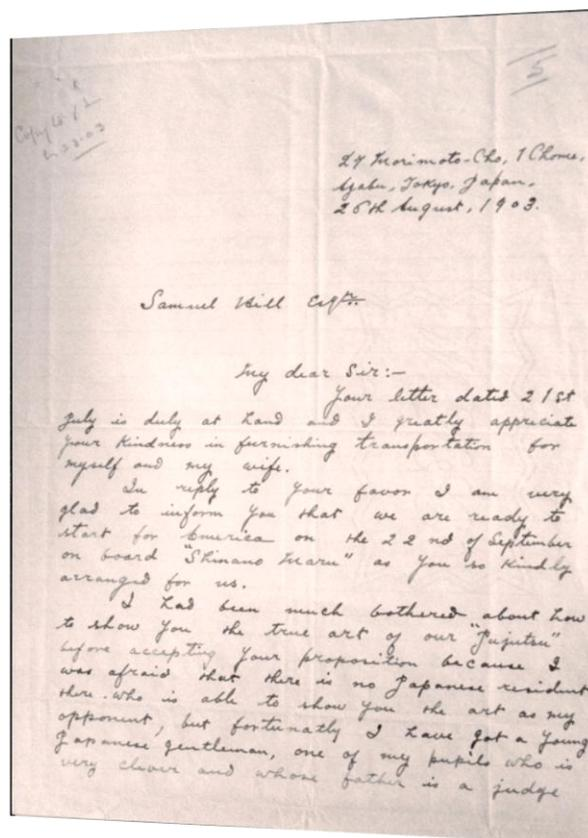 5
Copy to
27 Morimoto-Cho, 1 Chome,
Azabu, Tokyo, Japan,
26th August, 1903.
Samuel Hill Esqre.
My dear Sir:—
Your letter dated 21st
July is duly at hand and I greatly appreciate
your kindness in furnishing transportation for
myself and my wife.
In reply to your favor I am very
glad to inform you that we are ready to
start for America on the 22nd of September
on board "Shinano Maru" as you so kindly
arranged for us.
I had been much bothered about how
to show you the true art of our "Jujitsu"
before accepting your proposition because I
was afraid that there is no Japanese resident
there who is able to show you the art as my
opponent, but fortunatly I have got a young
Japanese gentleman, one of my pupils who is
very clever and whose father is a judge